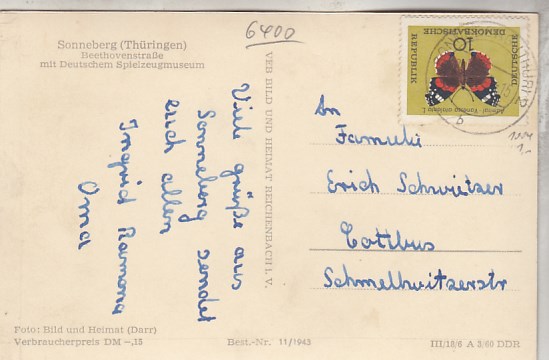 6400
Sonneberg (Thüringen)
Beethovenstraße
mit Deutschem Spielzeugmuseum
Viele grüße aus
Sonneberg sendet
euch allen
Ingrid Ramona
Oma
VEB BILD UND HEIMAT REICHENBACH I. V.
DEUTSCHE
DEMOKRATISCHE
REPUBLIK
10
An
Familie
Erich Schwietzer
Cottbus
Schmellwitzerstr
Foto: Bild und Heimat (Darr)
Verbraucherpreis DM –,15
Best.-Nr. 11/1943
III/18/6 A 3/60 DDR